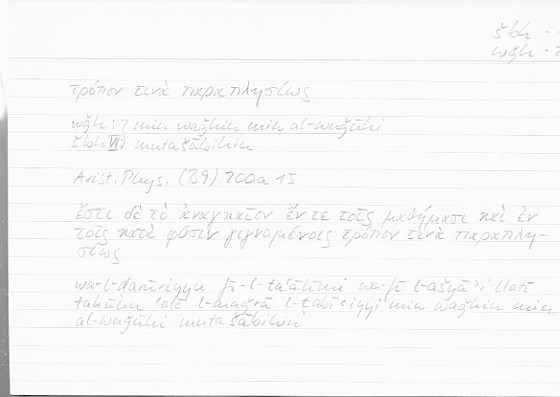 šbh -
wǧh -
τρόπον τινὰ παραπλησίως
wǧh : min waǧhin min al-wuǧūhi
šbh VI) mutašābihin
Arist. Phys. (B9) 200a 15
ἔστι δὲ τὸ ἀναγκαῖον ἔν τε τοῖς μαθήμασι καὶ ἐν
τοῖς κατὰ φύσιν γιγνομένοις τρόπον τινὰ παραπλη-
σίως
wa-l-ḍarūriyyu fī l-taʿālīmi wa-fī l-ašyāʾi llatī
takūnu ʿalā l-maǧrā l-ṭabīʿiyyi min waǧhin min
al-wuǧūhi mutašābihin